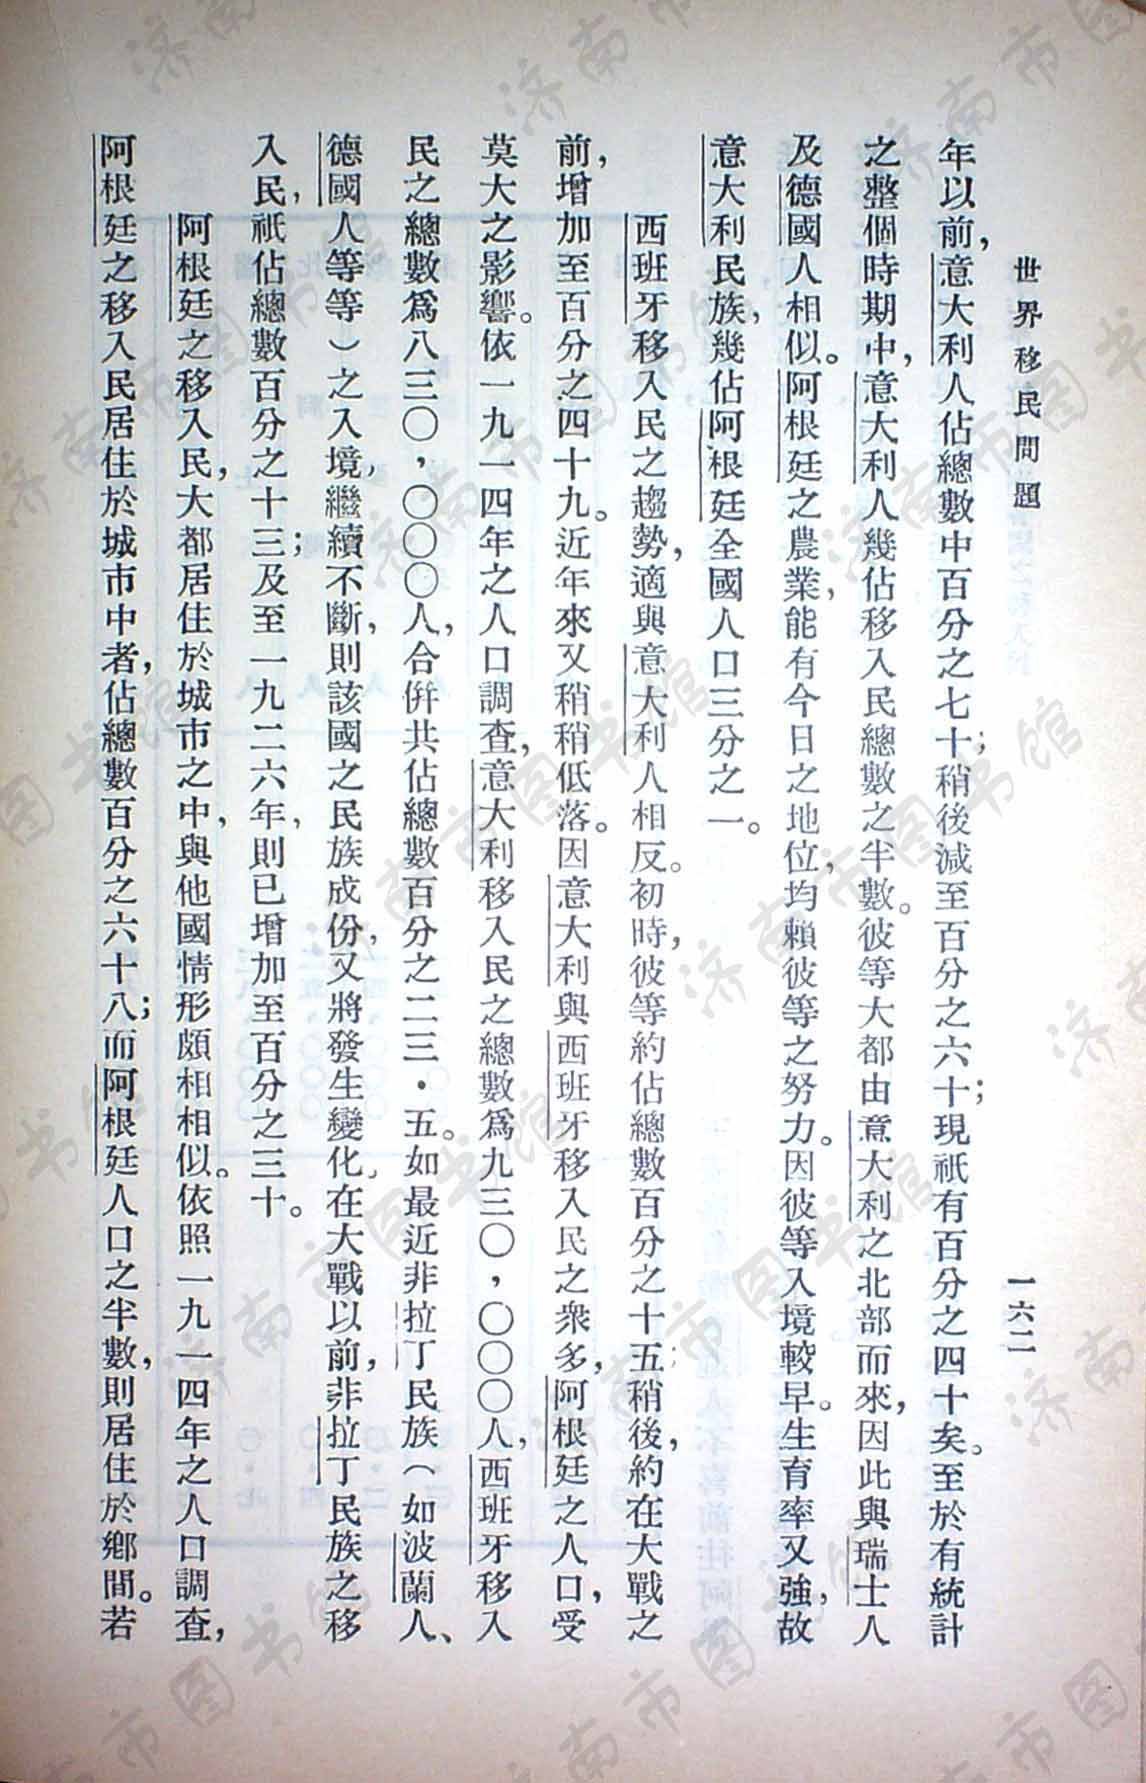 世界移民問題
一六二
年以前，意大利人佔總數中百分之七十；稍後減至百分之六十；現祇有百分之四十矣。至於有統計
之整個時期中，意大利人幾佔移入民總數之半數。彼等大都由意大利之北部而來，因此與瑞士人
及德國人相似。阿根廷之農業，能有今日之地位，均賴彼等之努力。因彼等入境較早。生育率又強，故
意大利民族，幾佔阿根廷全國人口三分之一。
西班牙移入民之趨勢，適與意大利人相反。初時，彼等約佔總數百分之十五；稍後，約在大戰之
前，增加至百分之四十九。近年來又稍稍低落。因意大利與西班牙移入民之衆多，阿根廷之人口，受
莫大之影響。依一九一四年之人口調查，意大利移入民之總數爲九三〇，〇〇〇人，西班牙移入
民之總數爲八三〇，〇〇〇人，合併共佔總數百分之二三・五。如最近非拉丁民族（如波蘭人、
德國人等等）之入境，繼續不斷，則該國之民族成份，又將發生變化。在大戰以前，非拉丁民族之移
入民，祇佔總數百分之十三；及至一九二六年，則已增加至百分之三十。
阿根廷之移入民，大都居住於城市之中，與他國情形頗相相似。依照一九一四年之人口調查，
阿根廷之移入民居住於城市中者，佔總數百分之六十八；而阿根廷人口之半數，則居住於鄉間。若
济南市图书馆